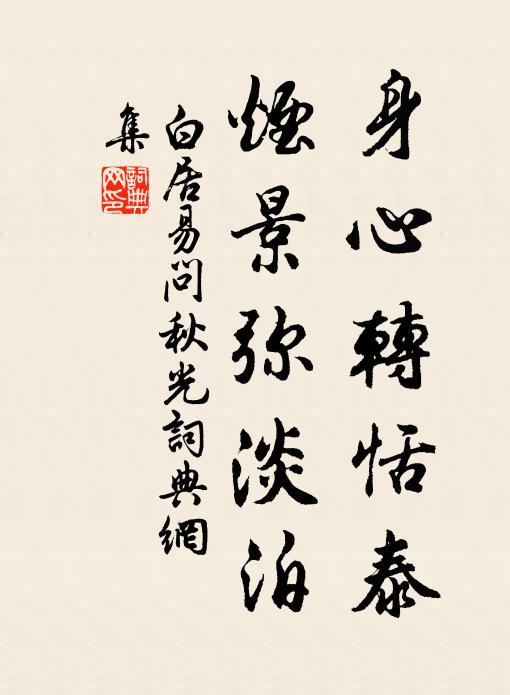 身心轉恬泰
煙景弥淡泊
白居易問秋光詞典網
集
詞典网印